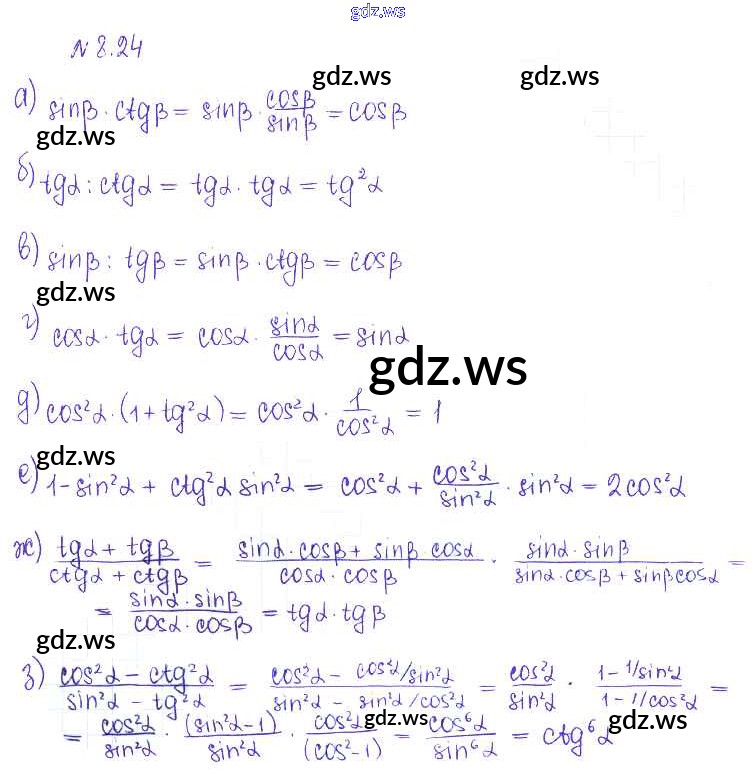 gdz.ws
№ 8.24
gdz.ws gdz.ws
а) sinβ · ctgβ = sinβ · cosβ/sinβ = cosβ
gdz.ws
б) tgα : ctgα = tgα · tgα = tg²α
в) sinβ : tgβ = sinβ · ctgβ = cosβ
gdz.ws
г) cosα · tgα = cosα · sinα/cosα = sinα
gdz.ws
д) cos²α · (1 + tg²α) = cos²α · 1/cos²α = 1
gdz.ws
е) 1 - sin²α + ctg²α sin²α = cos²α + cos²α/sin²α · sin²α = 2cos²α
ж) (tgα + tgβ)/(ctgα + ctgβ) = (sinα · cosβ + sinβ · cosα)/(cosα · cosβ) · (sinα · sinβ)/(sinα · cosβ + sinβ cosα) =
= (sinα · sinβ)/(cosα · cosβ) = tgα · tgβ
gdz.ws
з) (cos²α - ctg²α)/(sin²α - tg²α) = (cos²α - cos²α/sin²α)/(sin²α - sin²α/cos²α) = cos²α/sin²α · (1 - 1/sin²α)/(1 - 1/cos²α) =
gdz.ws gdz.ws
= cos²α/sin²α · (sin²α - 1)/sin²α · cos²α/(cos² - 1) = cos⁶α/sin⁶α = ctg⁶α